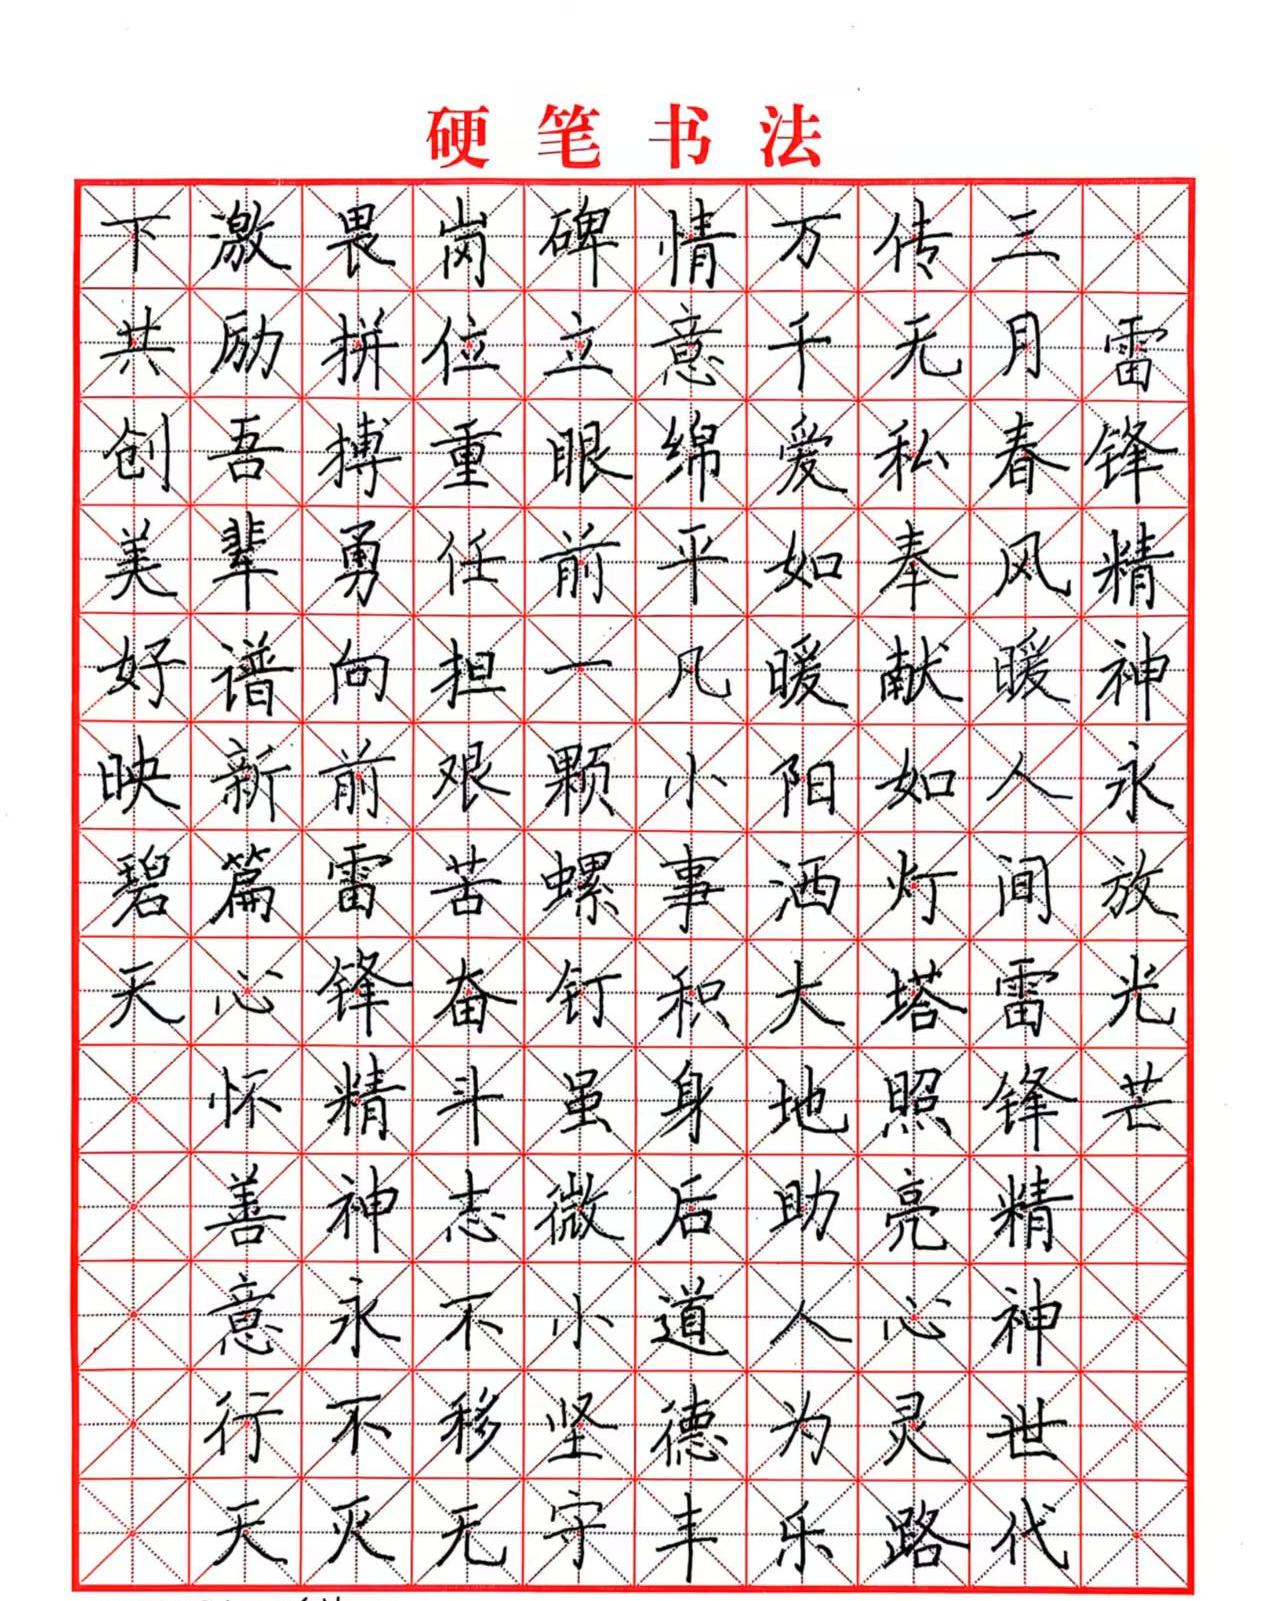 硬笔书法
雷锋精神永放光芒
三月春风暖人间雷锋精神世代
传无私奉献如灯塔照亮心灵路
万千爱如暖阳洒大地助人为乐
情意绵平凡小事积身后道德丰
碑立眼前一颗螺钉虽微小坚守
岗位重任担艰苦奋斗志不移无
畏拼搏勇向前雷锋精神永不灭
激励吾辈谱新篇心怀善意行天
下共创美好映碧天